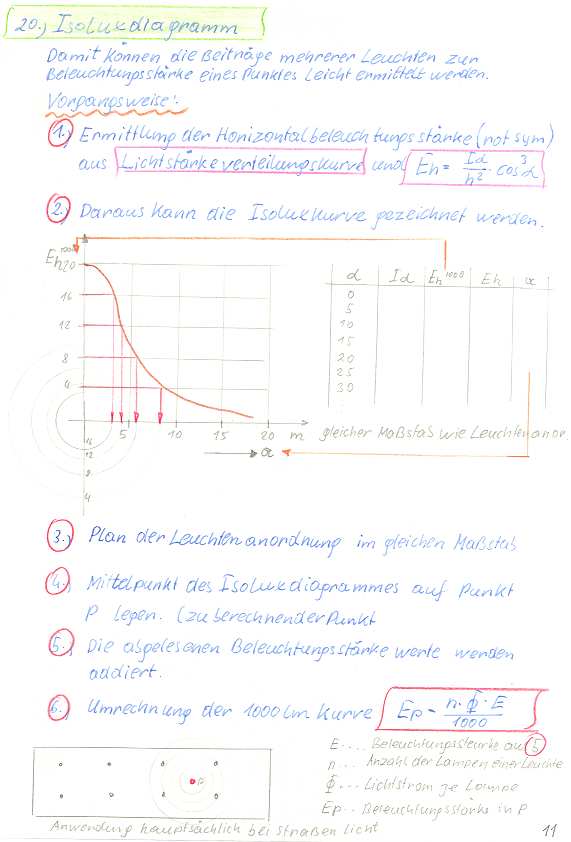 20.) Isoluxdiagramm
Damit können die Beiträge mehrerer Leuchten zur
Beleuchtungsstärke eines Punktes leicht ermittelt werden.
Vorgangsweise:
1.) Ermittlung der Horizontalbeleuchtungsstärke (rot sym)
aus Lichtstärkeverteilungskurve und Eh = Iα/h² · cos³α
2.) Daraus kann die Isoluxkurve gezeichnet werden.
Eh 1000
20
16
12
8
4
5 10 15 20 m
a
16
12
8
4
α Iα Eh 1000 Eh a
0
5
10
15
20
25
30
gleicher Maßstab wie Leuchtenanor.
3.) Plan der Leuchtenanordnung im gleichen Maßstab
4.) Mittelpunkt des Isoluxdiagrammes auf Punkt
P legen. (zu berechnender Punkt
5.) Die abgelesenen Beleuchtungsstärke werte werden
addiert.
6.) Umrechnung der 1000 lm Kurve Ep = n·Φ·E/1000
E .... Beleuchtungsstärke aus 5
n .... Anzahl der Lampen einer Leuchte
Φ .... Lichtstrom je Lampe
Ep .. Beleuchtungsstärke in P
P
Anwendung hauptsächlich bei Straßen licht
11